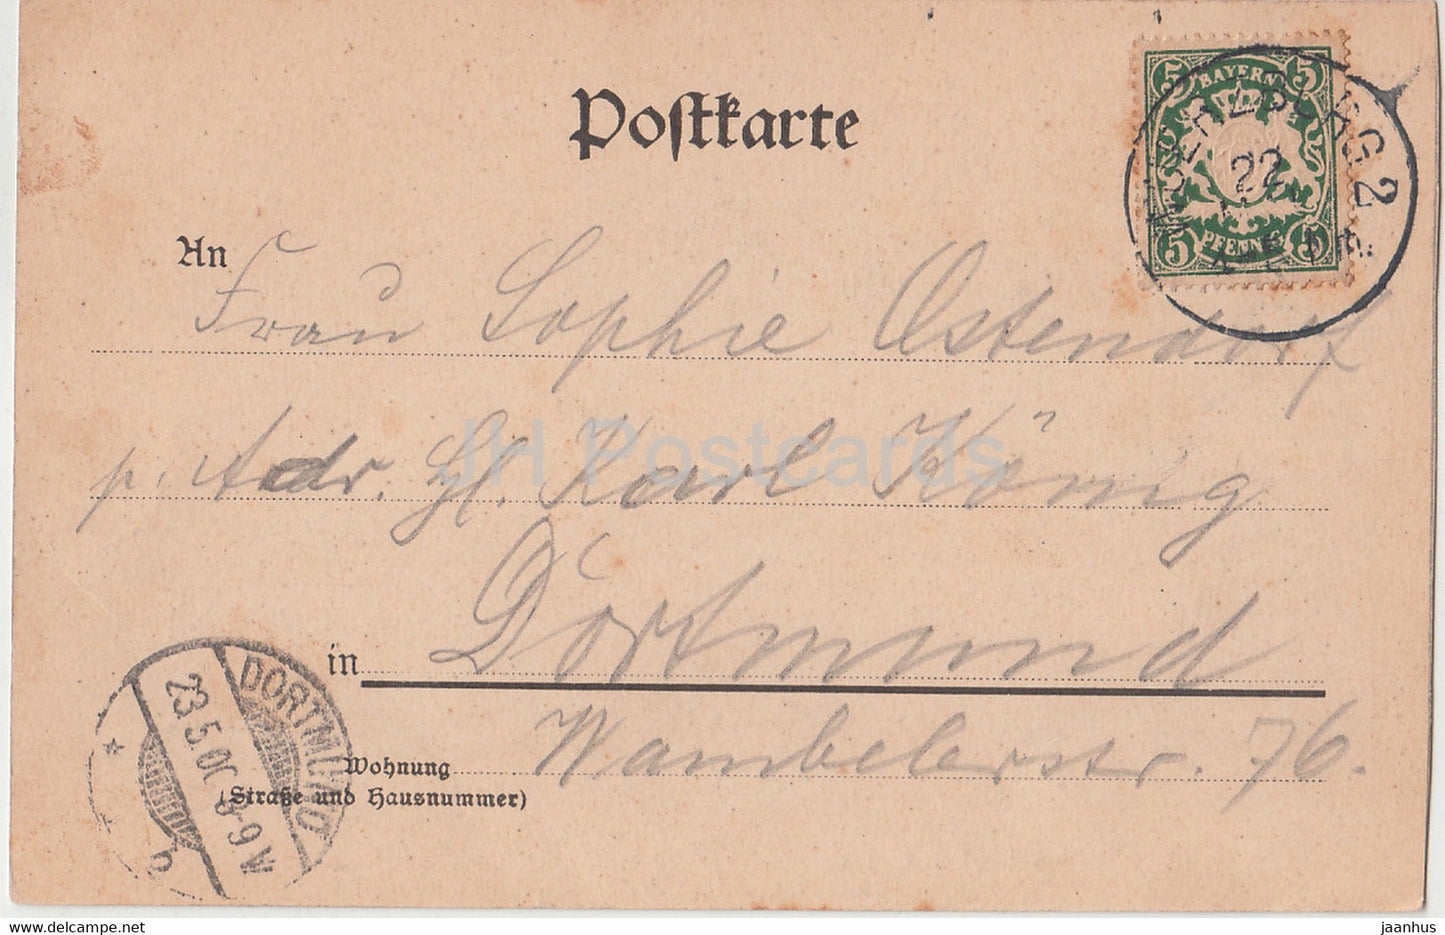 Postkarte
5 BAYERN 5
5 PFENNIG 5
WUERZBURG 2
22
An
Frau Sophie Ostendorf
p. Adr. H. Karl König
in Dortmund
Wohnung Wambelerstr. 76.
(Straße und Hausnummer)
DORTMUND
23.5.00. 8-9 V
JH Postcards
www.delcampe.net
jaanhus